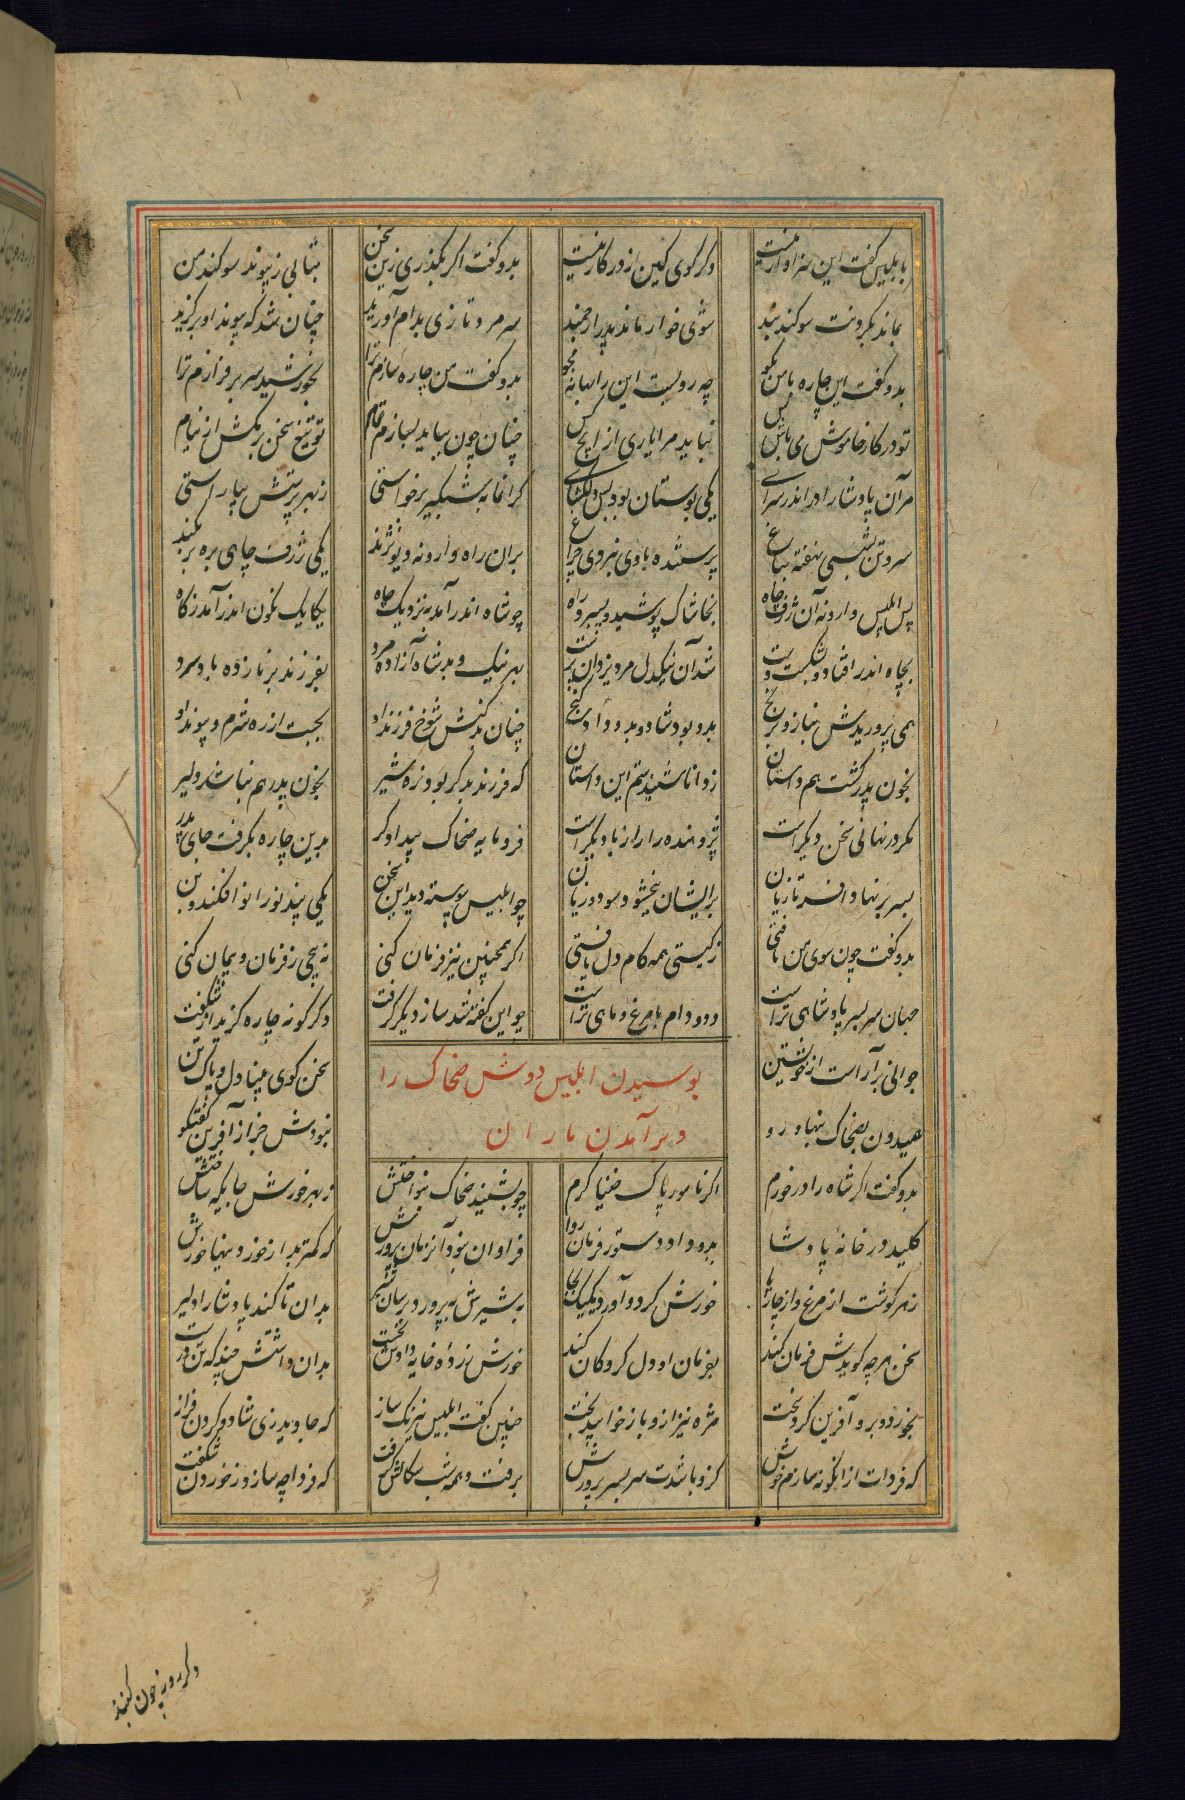 بابلیس گفت این سزاوار نیست دگر گوی کین از در کار نیست بدو گفت اگر بگذری زین سخن بتابی ز پیوند سوگند من
بماند بگردنت سوگند بند شوی خوار ماند پدر ارجمند سر مرد تازی بدام آورید چنان شد که پیوند او برگزید
بدو گفت این چاره با من بگو چه رویست این را بهانه مجو بدو گفت من چاره سازم ترا بخورشید سر برفرازم ترا
تو در کار خاموش می باش بس نباید مرا یاری از ایچ کس چنان چون بباید بسازم تمام تو تیغ سخن برمکش از نیام
مر آن پادشا را در اندر سرای یکی بوستان بود بس دلگشای گرانمایه شبگیر برخواستی ز بهر پرستش بیاراستی
سر و تن بشستی نهفته بباغ پرستنده با وی نبردی چراغ بران راه وارونه دیو نژند یکی ژرف چاهی بره بر بکند
پس ابلیس وارونه آن ژرف چاه بخاشاک پوشید و بسپرد راه چو شاه اندر آمد بنزدیک چاه یکایک نگون اندر آمد ز گاه
بچاه اندر افتاد و بشکست پست شد آن نیکدل مرد یزدان پرست بهر نیک و بد شاه آزاده مرد بفرزند بر نازده باد سرد
همی پروریدش بناز و برنج بدو بود شاد و بدو داد گنج چنان بدکنش شوخ فرزند او بجست از ره شرم و پیوند او
بخون پدر گشت هم داستان ز دانا شنیدستم این داستان که فرزند بد گر بود نره شیر بخون پدر هم نباشد دلیر
مگر در نهانی سخن دیگر است پژوهنده را راز با دیگر است فرومایه ضحاک بیدادگر بدین چاره بگرفت جای پدر
بسر بر نهاد افسر تازیان بر ایشان ببخشود سود و زیان چو ابلیس پیوسته دید این سخن یکی پند نو را نو افکند بن
بدو گفت چون سوی من تافتی ز گیتی همه کام دل یافتی اگر همچنین نیز فرمان کنی نه پیچی ز فرمان و پیمان کنی
جهان سر بسر پادشاهی تراست دد و دام با مرغ و ماهی تراست چو این گفته شد ساز دیگر گرفت دگر گونه چاره گزید از شگفت
جوانی برآراست از خویشتن سخن گوی و بینا دل و پاک تن
همیدون بضحاک بنهاد رو نبودش جز از آفرین گفتگو
بوسیدن ابلیس دوش ضحاک را
و برآمدن ماران
بدو گفت اگر شاه را در خورم اگر نامور پاک خنیاگرم چو بشنید ضحاک بنواختش ز بهر خورش جایگه ساختش
کلید در خانه پادشا بدو داد دستور فرمان روا فراوان نبود آنزمان پرورش که کمتر بد از خوردنیها خورش
ز هر گوشت از مرغ و از چارپا خورش کرد و آورد یکیک بجا بشیرش بپرورد برسان شیر بدان تا کند پادشا را دلیر
سخن هرچه گویدش فرمان کند بفرمان او دل گروگان کند خورش زرده خایه دادش نخست بدان داشتش چند گه تن درست
بخورد و برو آفرین کرد سخت مزه نیز ازو باز خوانید بخت چنین گفت ابلیس نیرنگ ساز که جاوید زی شاد و گردن فراز
که فردات از انگونه سازم خورش کزو باشدت سر بسر پرورش برفت و همه شب سگالش گرفت که فردا چه سازد ز خوردن شگفت
دگر روز چون گنبد